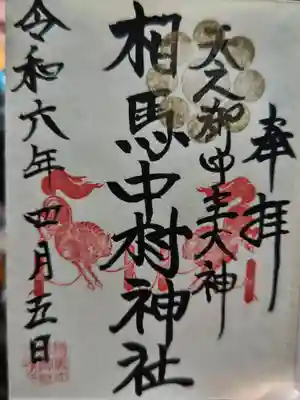 奉拝
天之御中主大神
相馬中村神社
令和六年四月五日